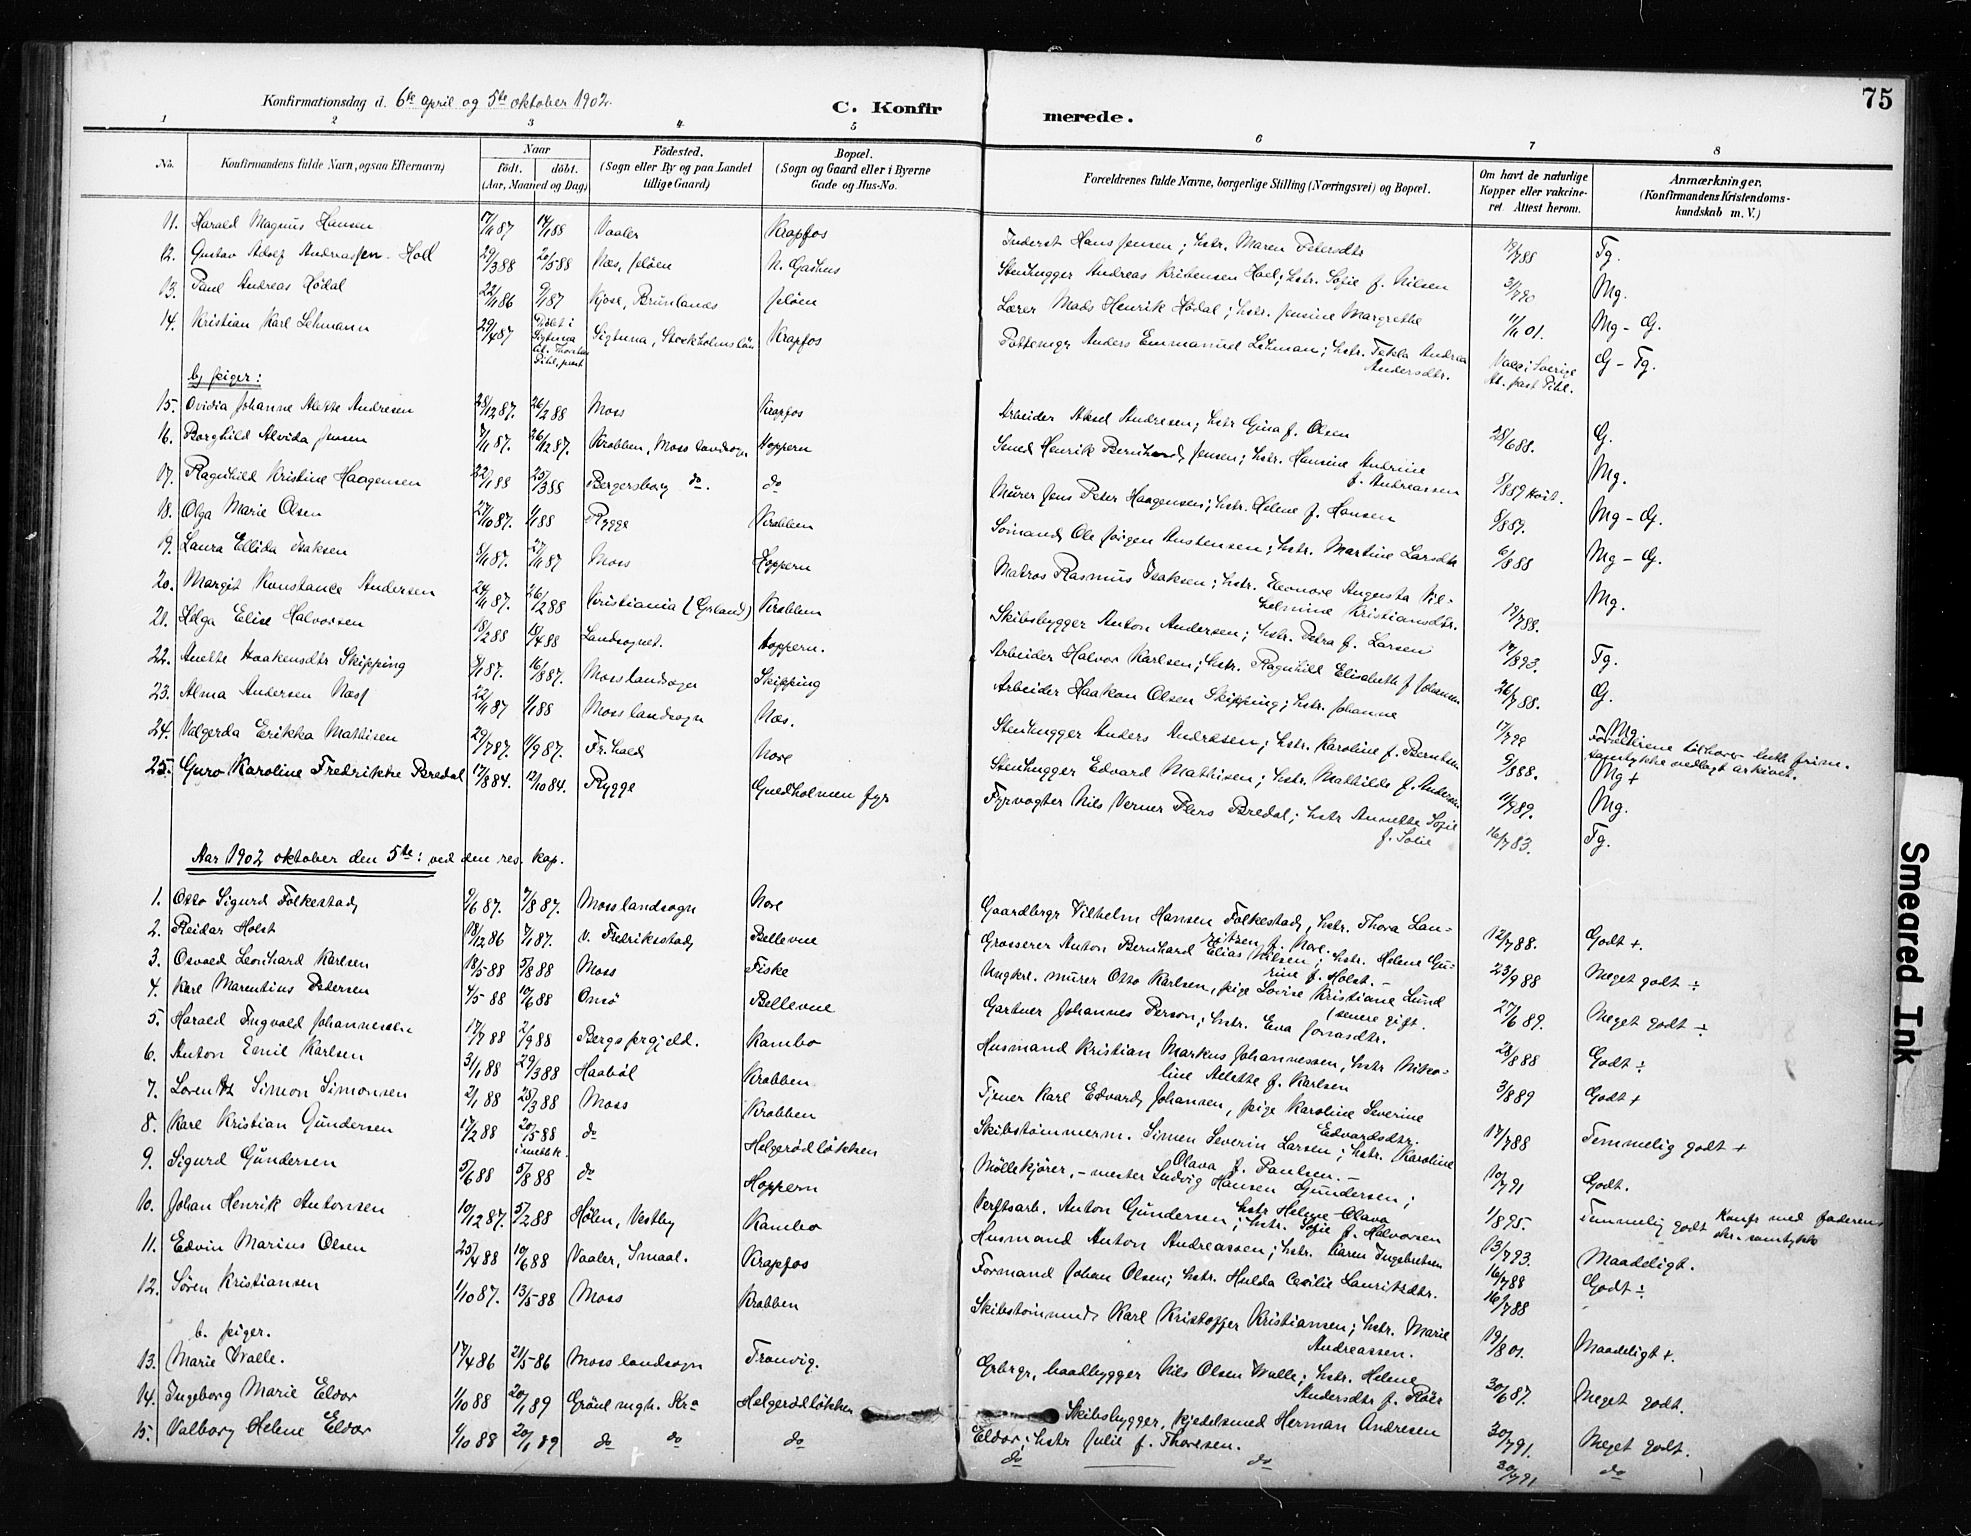 75
Konfirmationsdag d. 6te april og 5te oktober 1902.
C. Konfirmerede.
1 2 3 4 5 6 7 8
No. Konfirmandens fulde Navn, ogsaa Efternavn) Naar födt. döbt. (Aar, Maaned og Dag) Födested. (Sogn eller By og paa Landet tillige Gaard) Bopæl. (Sogn og Gaard eller i Byerne Gade og Hus-No. Forældrenes fulde Navne, borgerlige Stilling (Næringsvei) og Bopæl. Om havt de naturlige Kopper eller vakcineret. Attest herom. Anmærkninger. (Konfirmandens Kristendomskundskab m. V.)
11. Harald Magnus Hansen 17/11 87 14/1 88 Vaaler Krapfos Inderst Hans Jensen; hstr. Maren Petersdtr 19/7 88 Tg.
12. Gustav Adolf Andreassen Holl 29/3 88 20/5 88 Næs, Jeløen N. Gashus Stenhugger Andreas Kristensen Holl; hstr. Sofie f. Nilsen 31/7 90 Mg.
13. Paul Andreas Hødal 22/11 86 9/1 87 Kjose, Brunlanes Jeløen Lærer Mads Henrik Hødal; hstr. Jensine Margrethe 11/11 01. Mg - G.
14. Kristian Karl Lehmann 29/4 87 Døbt i Sigtuna Sigtuna, Stockholms län Krapfos Pottemgr Anders Emmanuel Lehman; hstr. Tekla Andrea Andersdtr. Vacc. i Sverige At. past Pihl. G - Tg.
b) piger:
15. Ovidia Johanne Alette Andresen 28/12 87. 26/2 88 Moss Krapfos Arbeider Aksel Andresen; hstr Gina f. Olsen 28/6 88. G.
16. Borghild Alvida Jensen 7/11 87. 26/12 87. Krabben, Moss landsogn Hoppern Smed Henrik Bernhard Jensen; hstr. Hansine Andrine f. Andreassen 5/8 89 Mg.
17. Ragnhild Kristine Haagensen 22/1 88 25/3 88 Bergersborg do. do Murer Jens Peter Haagensen; hstr. Helene f. Hansen 8/8 87. Mg - G.
18. Olga Marie Olsen 27/10 87. 1/1 88 Rygge Krabben Sømand Ole Jørgen Austensen; hstr. Martine Larsdtr 6/8 88 Mg - G.
19. Laura Ellida Isaksen 5/11 87. 27/11 87 Moss Hoppern Matros Rasmus Isaksen; hstr. Eleonore Augusta Vilhelmine Kristiansdtr. 19/7 88. Mg.
20. Margit Konstance Andersen 24/11 87. 26/12 88 Kristiania (Grland) Krabben Skibsbygger Anton Andersen; hstr. Petra f. Larsen 17/8 93. Tg.
21. Helga Elise Halvorsen 18/2 88 18/4 88 Landsognet. Hoppern. Arbeider Halvor Karlsen; hstr. Ragnhild Elisabeth f Johansen 26/7 88. G.
22. Anette Haakensdtr Skipping 9/1 87. 16/8 87. Moss landsogn Skipping Arbeider Haakon Olsen Skipping; hstr. Johanne 17/7 99 Mg Forældrene tilhører luth frim. samtykke vedlagt arkivet.
23. Alma Andersen Næss 22/11 87 1/1 88 Moss landsogn Næs. Stenhugger Anders Andresen; hstr. Karoline f. Berntsen 9/8 88. Mg +
24. Valgerda Erikka Mathisen 29/7 87. 11/9 87. Fr.hald Nore Stenhugger Edvard Mathisen; hstr. Mathilde f. Andersen 11/9 89. Mg.
25. Guro Karoline Fredrikke Bredal 17/8 84. 12/10 84. Rygge Guldholmen fyr Fyrvogter Nils Verner Flers Bredal; hstr Annette Sofie f. Solie 16/7 83. Tg.
Aar 1902 oktober den 5te: ved den res. kap.
1. Otto Sigurd Folkestad 9/6 87. 7/8 87. Moss landsogn Nore Gaardbrgr Vilhelm Hansen Folkestad, hstr. Thora Lauritsen f. Nore. 12/7 88. Godt +.
2. Reidar Holst 18/12 86 7/1 87. v. Fredriksstad Bellevue Grosserer Anton Bernhard Elias Nilsen; hstr. Helene Gurine f. Holst. - 23/9 88 Meget godt ÷
3. Osvald Leonhard Karlsen 18/5 88 5/8 88 Moss Fiske Ungkrl. murer Otto Karlsen, pige Lovise Kristiane Lund (senere gift. 27/6 89. Meget godt ÷
4. Karl Marentius Petersen 4/5 88 10/6 88 Onsø Bellevue Gartner Johannes Person; hstr. Eva Jonasdtr. 28/8 88 Godt ÷
5. Harald Ingvald Johannessen 17/7 88 2/9 88 Bergs prgjeld. Kambo Husmand Kristian Markus Johannessen, hstr Nikoline Alette f. Karlsen 3/8 89 Godt +
6. Anton Emil Karlsen 31/1 88 29/3 88 Haabøl Krabben Tjener Karl Edvard Johansen, pige Karoline Severine Edvardsdtr. 17/7 88 Temmelig godt +
7. Lorentz Simon Simonsen 2/1 88 25/3 88 Moss Krabben Skibstømmerm. Simen Severin Larsen; hstr. Karoline Olava f. Paulsen. - 10/7 91 Godt.
8. Karl Kristian Gundersen 17/2 88 20/5 88 i meth.k. do Helgerødløkken Møllekjører, - mester Ludvig Hansen Gundersen; hstr Helene Olava 1/8 95. Temmelig godt Konfr med faderens skr. samtykke
9. Sigurd Gundersen 5/6 88 5/8 88 do Hoppern Verftsarb. Anton Gundersen; hstr. Sofie f. Halvorsen 13/7 93. Maadeligt.
10. Johan Henrik Antonsen 10/12 87. 5/2 88 Hølen, Vestby Kambo Husmand Anton Andreassen; hstr. Karen Ingebretsen 16/7 88 Godt ÷
11. Edvin Marius Olsen 25/4 88 10/6 88 Vaaler, Smaal. Krapfos Formand Johan Olsen; hstr. Hulda Cecilie Lauritsdtr. 16/7 88
12. Søren Kristiansen 1/10 87. 13/5 88 Moss Krabben Skibstømmmd Karl Kristoffer Kristiansen; hstr. Marie Andreassen. 19/8 01. Maadeligt +.
b. piger.
13. Marie Walle. 17/4 86 21/5 86 Moss landsogn Tronvig. Grbrgr, baadbygger Nils Olsen Walle; hstr. Helene Andersdtr f. Röer 30/6 87. Meget godt.
14. Ingeborg Marie Eldor 1/10 88 20/1 89 Grönl mgh. Kra Helgerødløkken Skibsbygger, kjedelsmed Herman Andresen Eldor; hstr Julie f. Thoresen. 30/7 91. Meget godt.
15. Valborg Helene Eldor 1/10 88 20/1 89 do do do do do 30/7 91 do
Smeared Ink